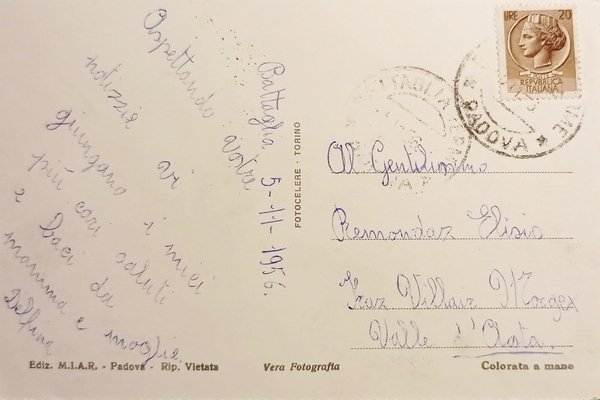 Battaglia 5-11-1956.
Aspettando Vostre
notizie vi
giungano i miei
più cari saluti
e baci da
mamma e moglie
Delfina
Al Gentilissimo
Remondaz Elisio
Fraz Villair Morgex
Valle d'Aosta.
LIRE 20
REPUBBLICA
ITALIANA
BATTAGLIA
PADOVA
FOTOCELERE - TORINO
Ediz. M.I.A.R. - Padova - Rip. Vietata
Vera Fotografia
Colorata a mano